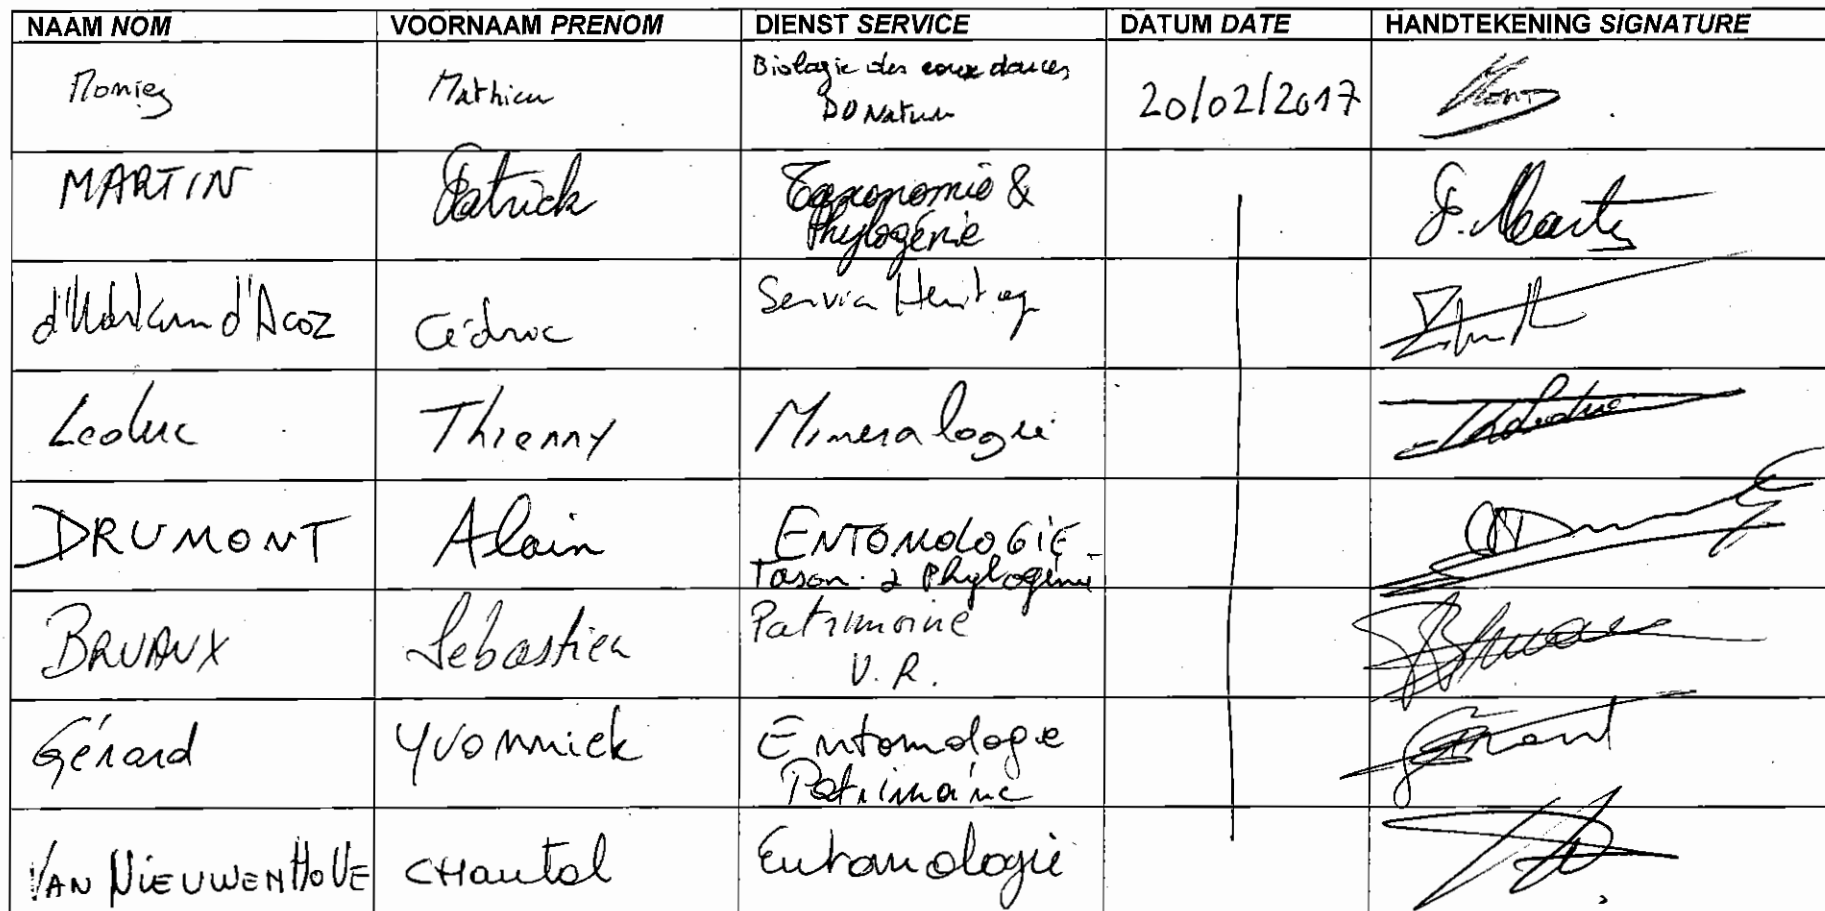 NAAM NOM VOORNAAM PRENOM DIENST SERVICE DATUM DATE HANDTEKENING SIGNATURE
Moniez Mathieu Biologie des eaux douces 20/02/2017
DO Nature
MARTIN Patrick Taxonomie & P. Martin
Phylogénie
d'Udekem d'Acoz Cédric Service Heritage
Leduc Thierry Mineralogie
DRUMONT Alain ENTOMOLOGIE
Taxon. & Phylogénie
BRUAUX Sébastien Patrimoine
V.R.
Gérard Yvonnick Entomologie Gérard
Patrimoine
VAN NIEUWENHOVE CHantal Entomologie